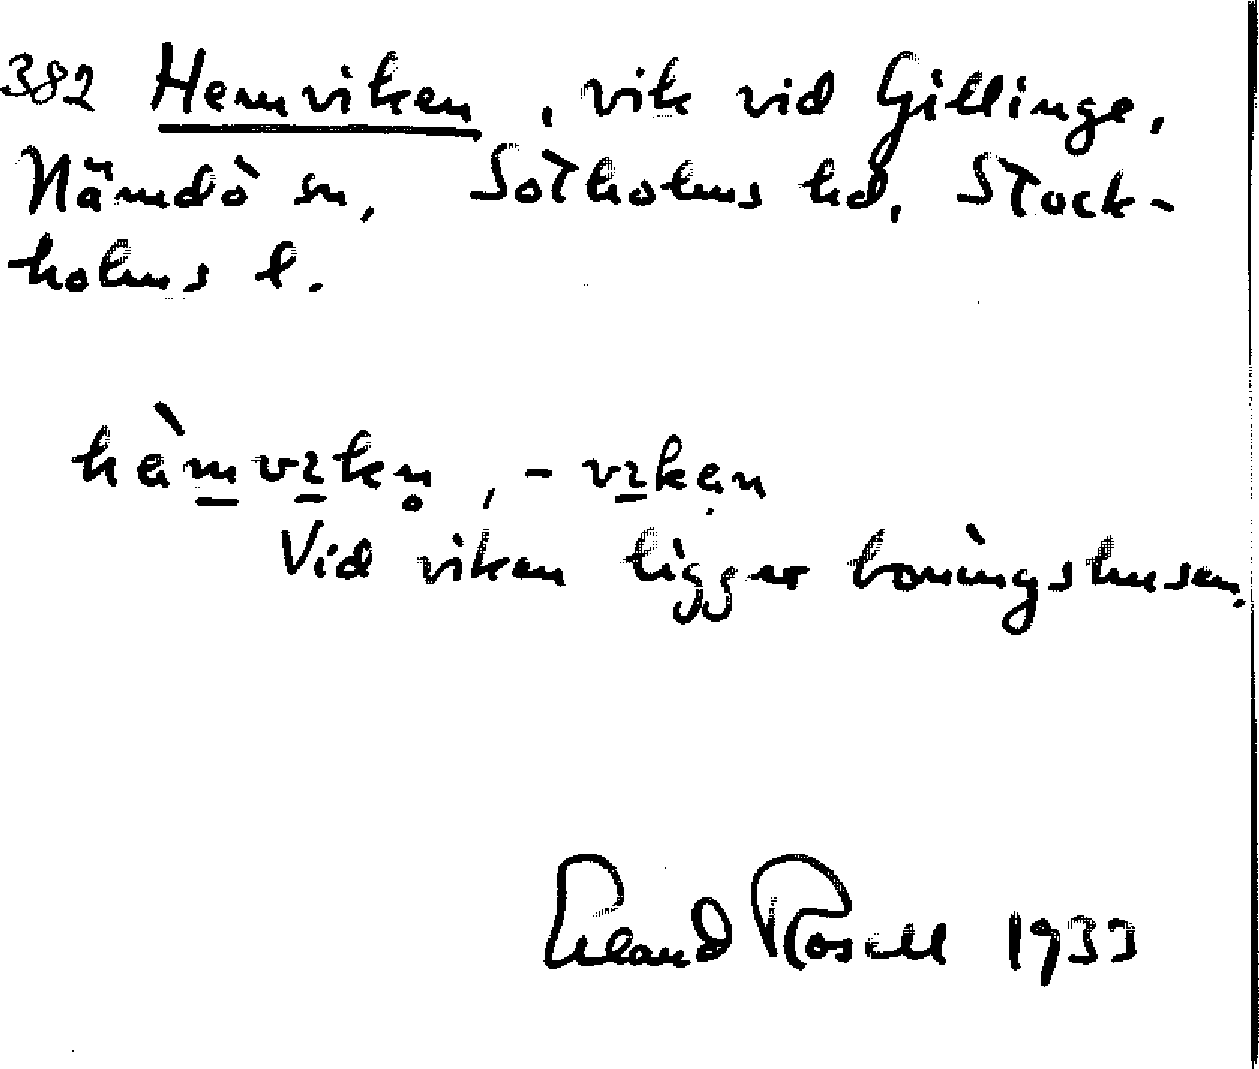 382 Hemviken, vik vid Gillinge,
Nämdö sn, Sotholms hd, Stock-
holms l.
hèm̲vɪ̲kn̥, -vɪ̲kạn
Vid viken ligger boningshusen.
Erland Rosell 1933